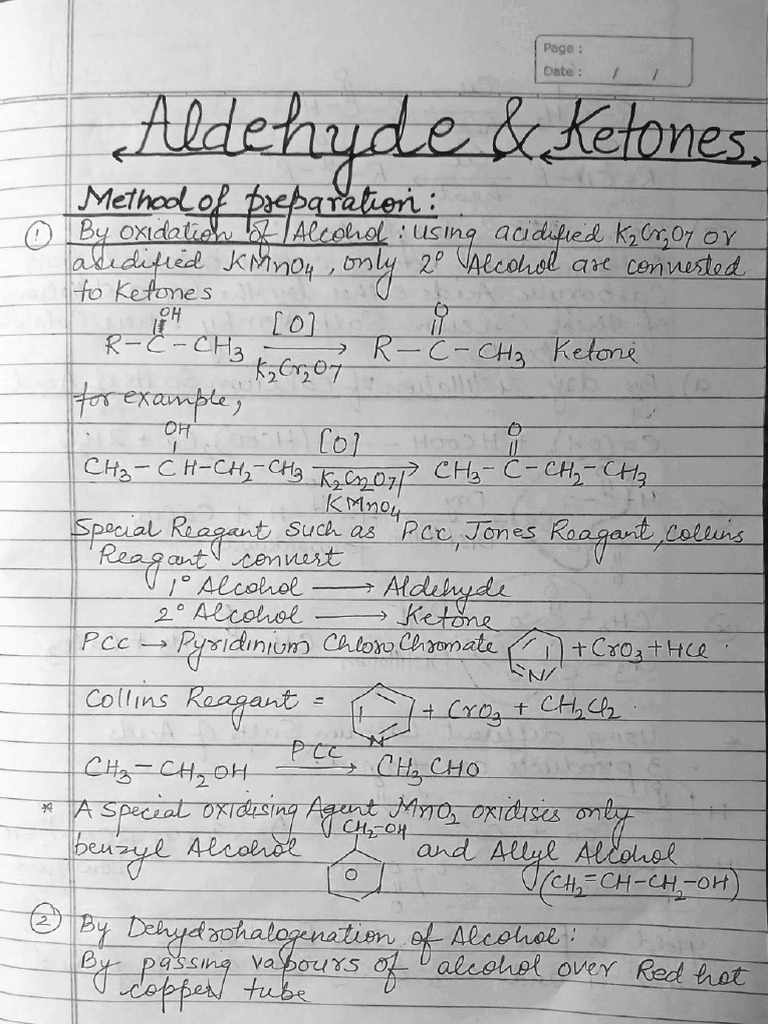 Page :
Date : / /
Aldehyde & Ketones
Method of preparation :
① By oxidation of Alcohol : using acidified K2Cr2O7 or
acidified KMnO4, only 2° Alcohol are converted
to Ketones
OH [O] O
R — C — CH3 ⟶ R — C — CH3 Ketone
K2Cr2O7
for example,
OH [O] O
CH3 — CH — CH2 — CH3 ⟶ CH3 — C — CH2 — CH3
K2Cr2O7/
KMnO4
Special Reagant such as PCC, Jones Reagant, Collins
Reagant convert
1° Alcohol ⟶ Aldehyde
2° Alcohol ⟶ Ketone
PCC → Pyridinium Chloro Chromate N + CrO3 + HCl .
Collins Reagant = N + CrO3 + CH2Cl2 .
PCC
CH3 — CH2OH ⟶ CH3CHO
* A special oxidising Agent MnO2 oxidises only
CH2-OH
benzyl Alcohol and Allyl Alcohol
(CH2=CH-CH2-OH)
② By Dehydrohalogenation of Alcohol :
By passing vapours of alcohol over Red hot
copper tube